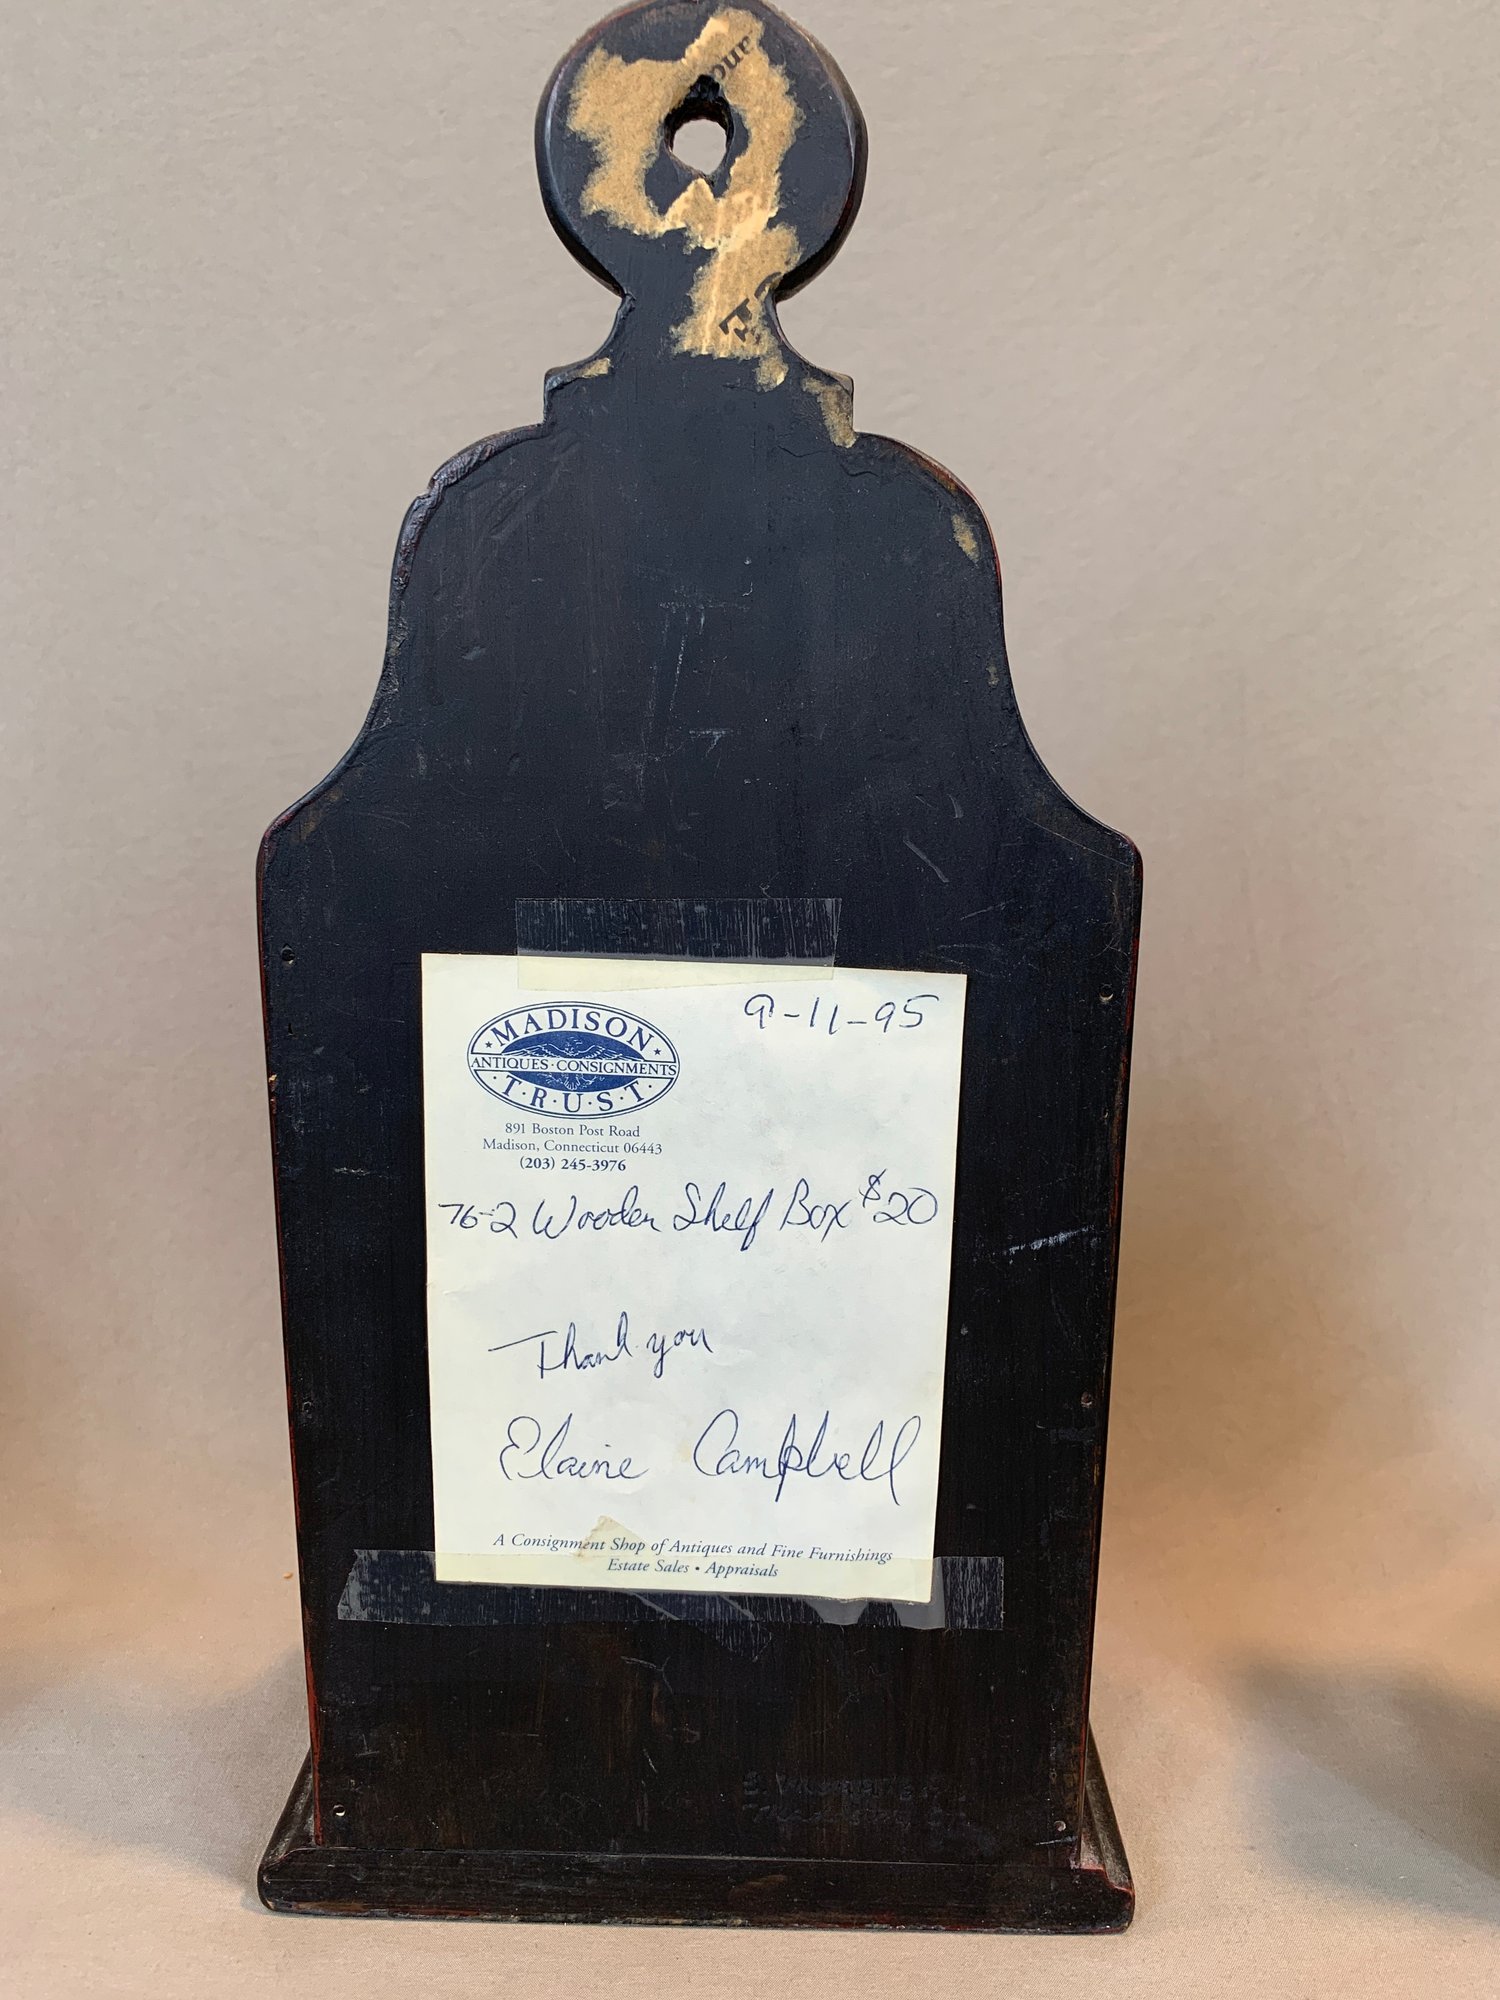 9-11-95
MADISON
ANTIQUES·CONSIGNMENTS
·T·R·U·S·T·
891 Boston Post Road
Madison, Connecticut 06443
(203) 245-3976
76-2 Wooden Shelf Box $20
Thank you
Elaine Campbell
A Consignment Shop of Antiques and Fine Furnishings
Estate Sales • Appraisals